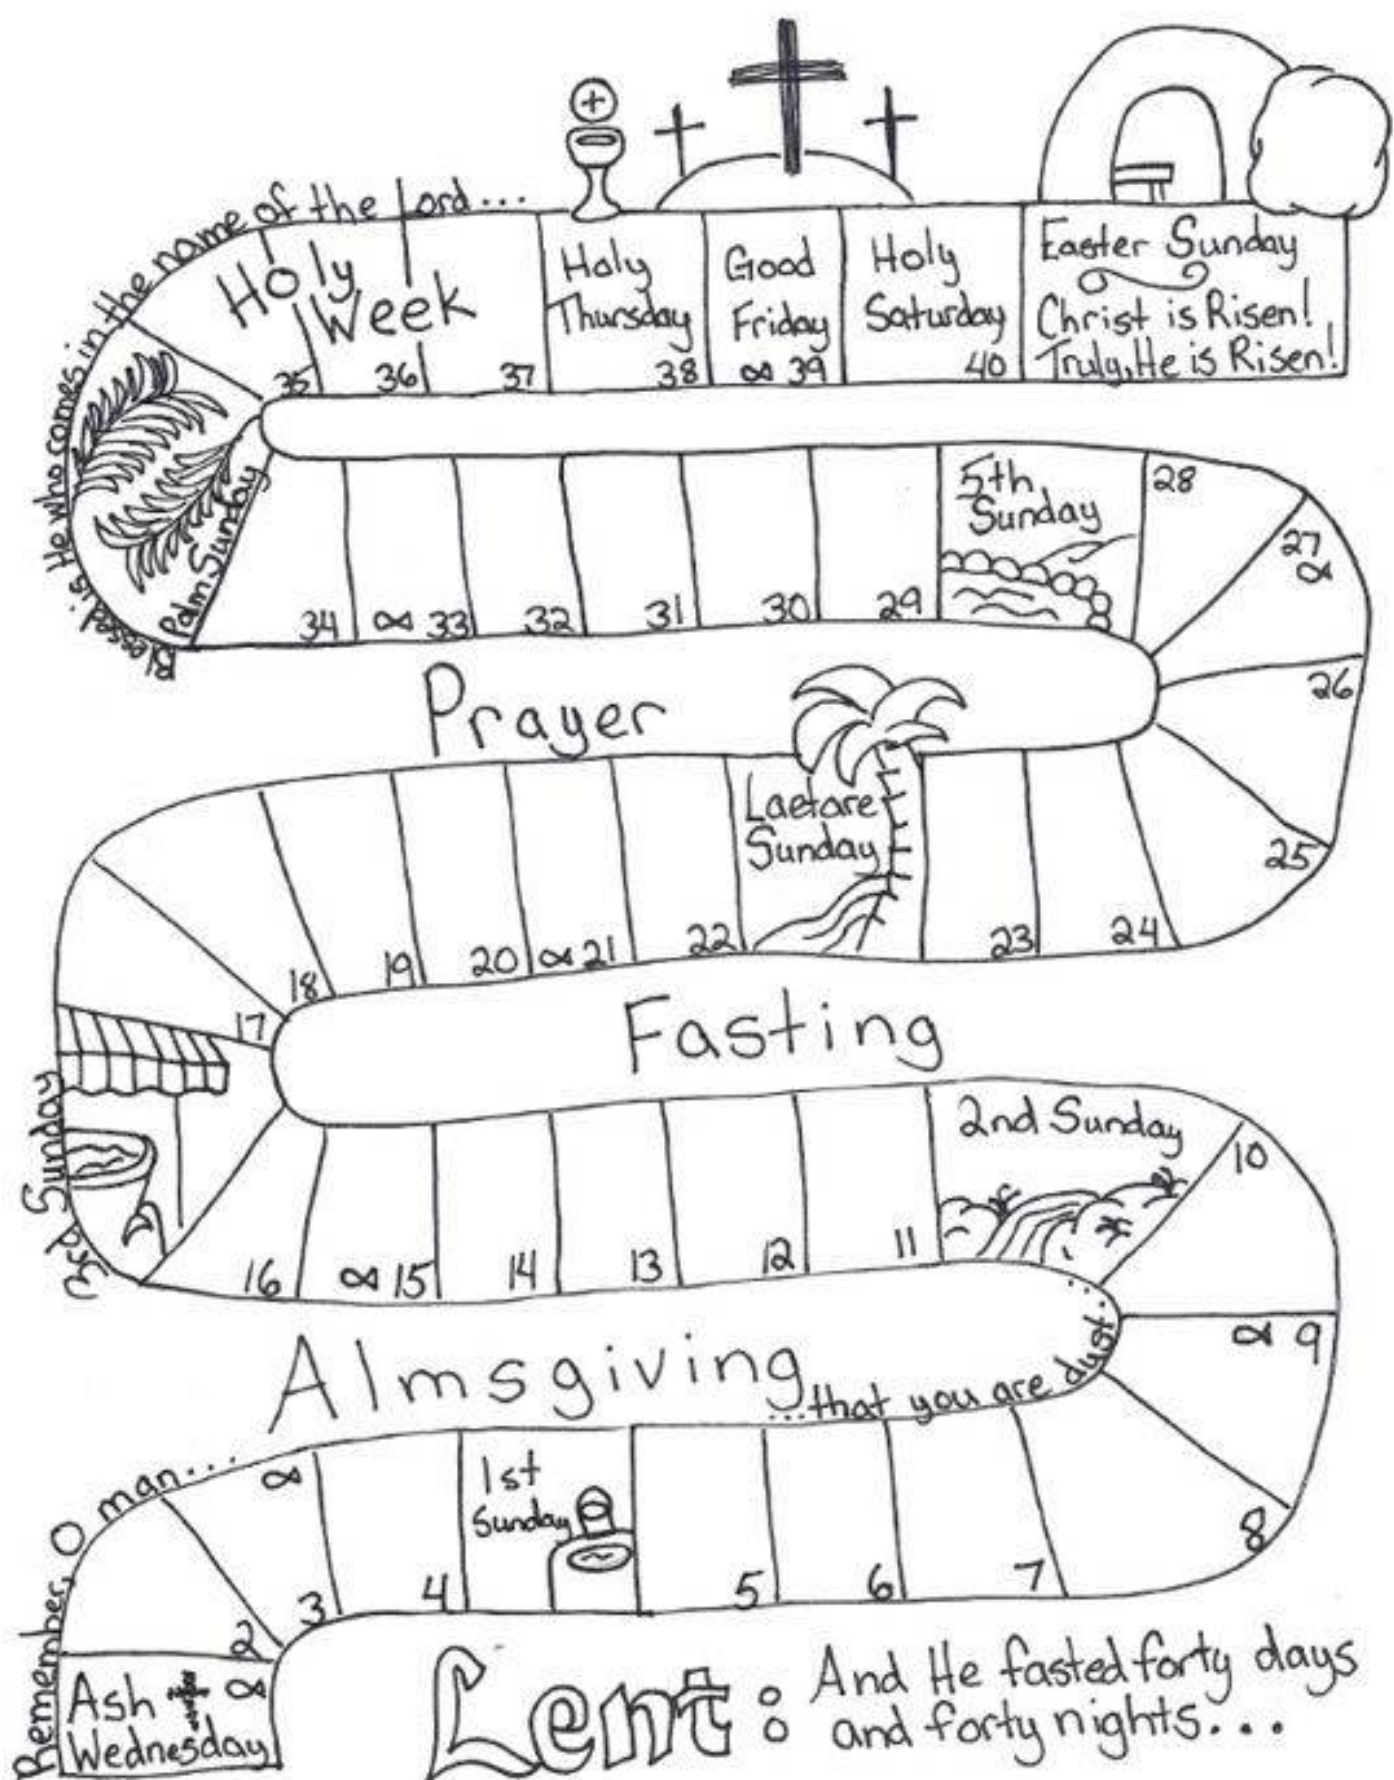 Blessed is He who comes in the name of the Lord...
Holy
Week
35
36
37
Holy
Thursday
38
Good
Friday
39
Holy
Saturday
40
Easter Sunday
Christ is Risen!
Truly, He is Risen!
Palm Sunday
34
33
32
31
30
29
5th
Sunday
28
27
26
25
Prayer
18
19
20
21
22
Laetare
Sunday
23
24
17
Fasting
3rd Sunday
16
15
14
13
12
11
2nd Sunday
10
9
8
Almsgiving
...that you are dust...
Remember, O man...
2
3
4
1st
Sunday
5
6
7
Ash
Wednesday
Lent:
And He fasted forty days
and forty nights...